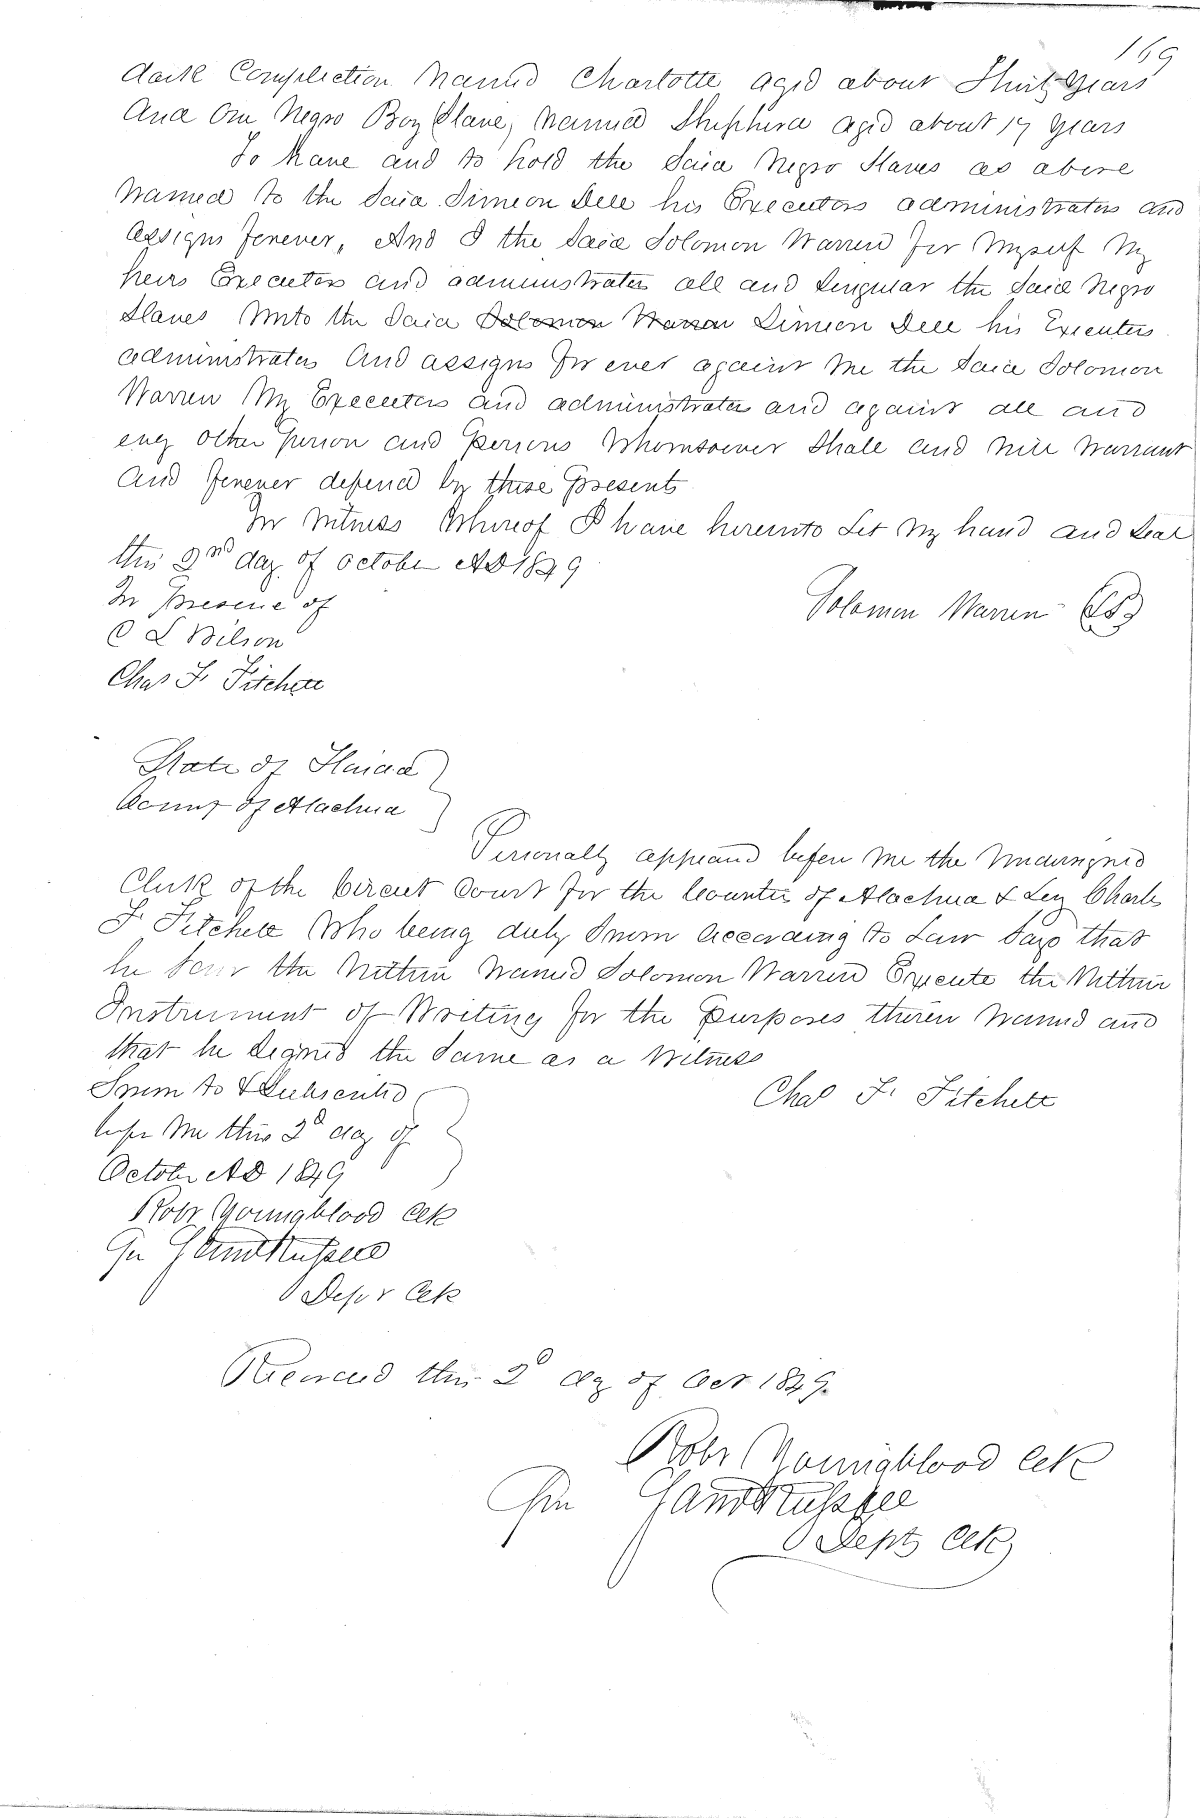 169
dark Complection Named Charlotte aged about Thirty years
And One Negro Boy Slave, Named Shepherd aged about 17 years
To have and to hold the Said Negro Slaves as above
Named to the Said Simeon Dell his Executors administrators and
assigns forever, And I the Said Solomon Warren for Myself My
heirs Executors and administrators all and Singular the Said Negro
Slaves Unto the Said Solomon Warren Simeon Dell his Executors
administrators And assigns for ever against Me the Said Solomon
Warren My Executors and administrators and against all and
eny other Person and Persons Whomsoever Shall and Will Warrant
and forever defend by these Presents
In Witness Whereof I have hereunto Set My hand and Seal
this 2nd day of October AD 1849
In Presence of
Solomon Warren (LS)
C L Wilson
Chas F Fitchett
State of Florida
County of Alachua
Personally appeared before Me the Undersigned
Clerk of the Circuit Court for the Counties of Alachua & Levy Charles
F Fitchett Who being duly Sworn According to Law Says that
he Saw the Within Named Solomon Warren Execute the Within
Instrument of Writing for the Purposes therein Named and
that he Signed the Same as a Witness
Sworn to & Subscribed
Chas F. Fitchett
before Me this 2d day of
October AD 1849
Robt Youngblood Clk
Per
Dept Clk
Recorded this 2d day of Oct 1849.
Robt Youngblood Clk
Per
Depty Clk